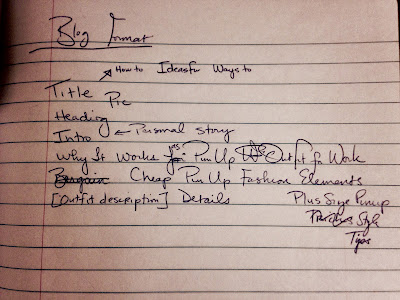 Blog Format
How to Ideas for Ways to
Title Pic
Heading
Intro ← Personal story
Why It Works as Pin Up Outfit for Work
Bargain Cheap Pin Up Fashion Elements
[Outfit description] Details
Plus Size Pinup
Style
Tips